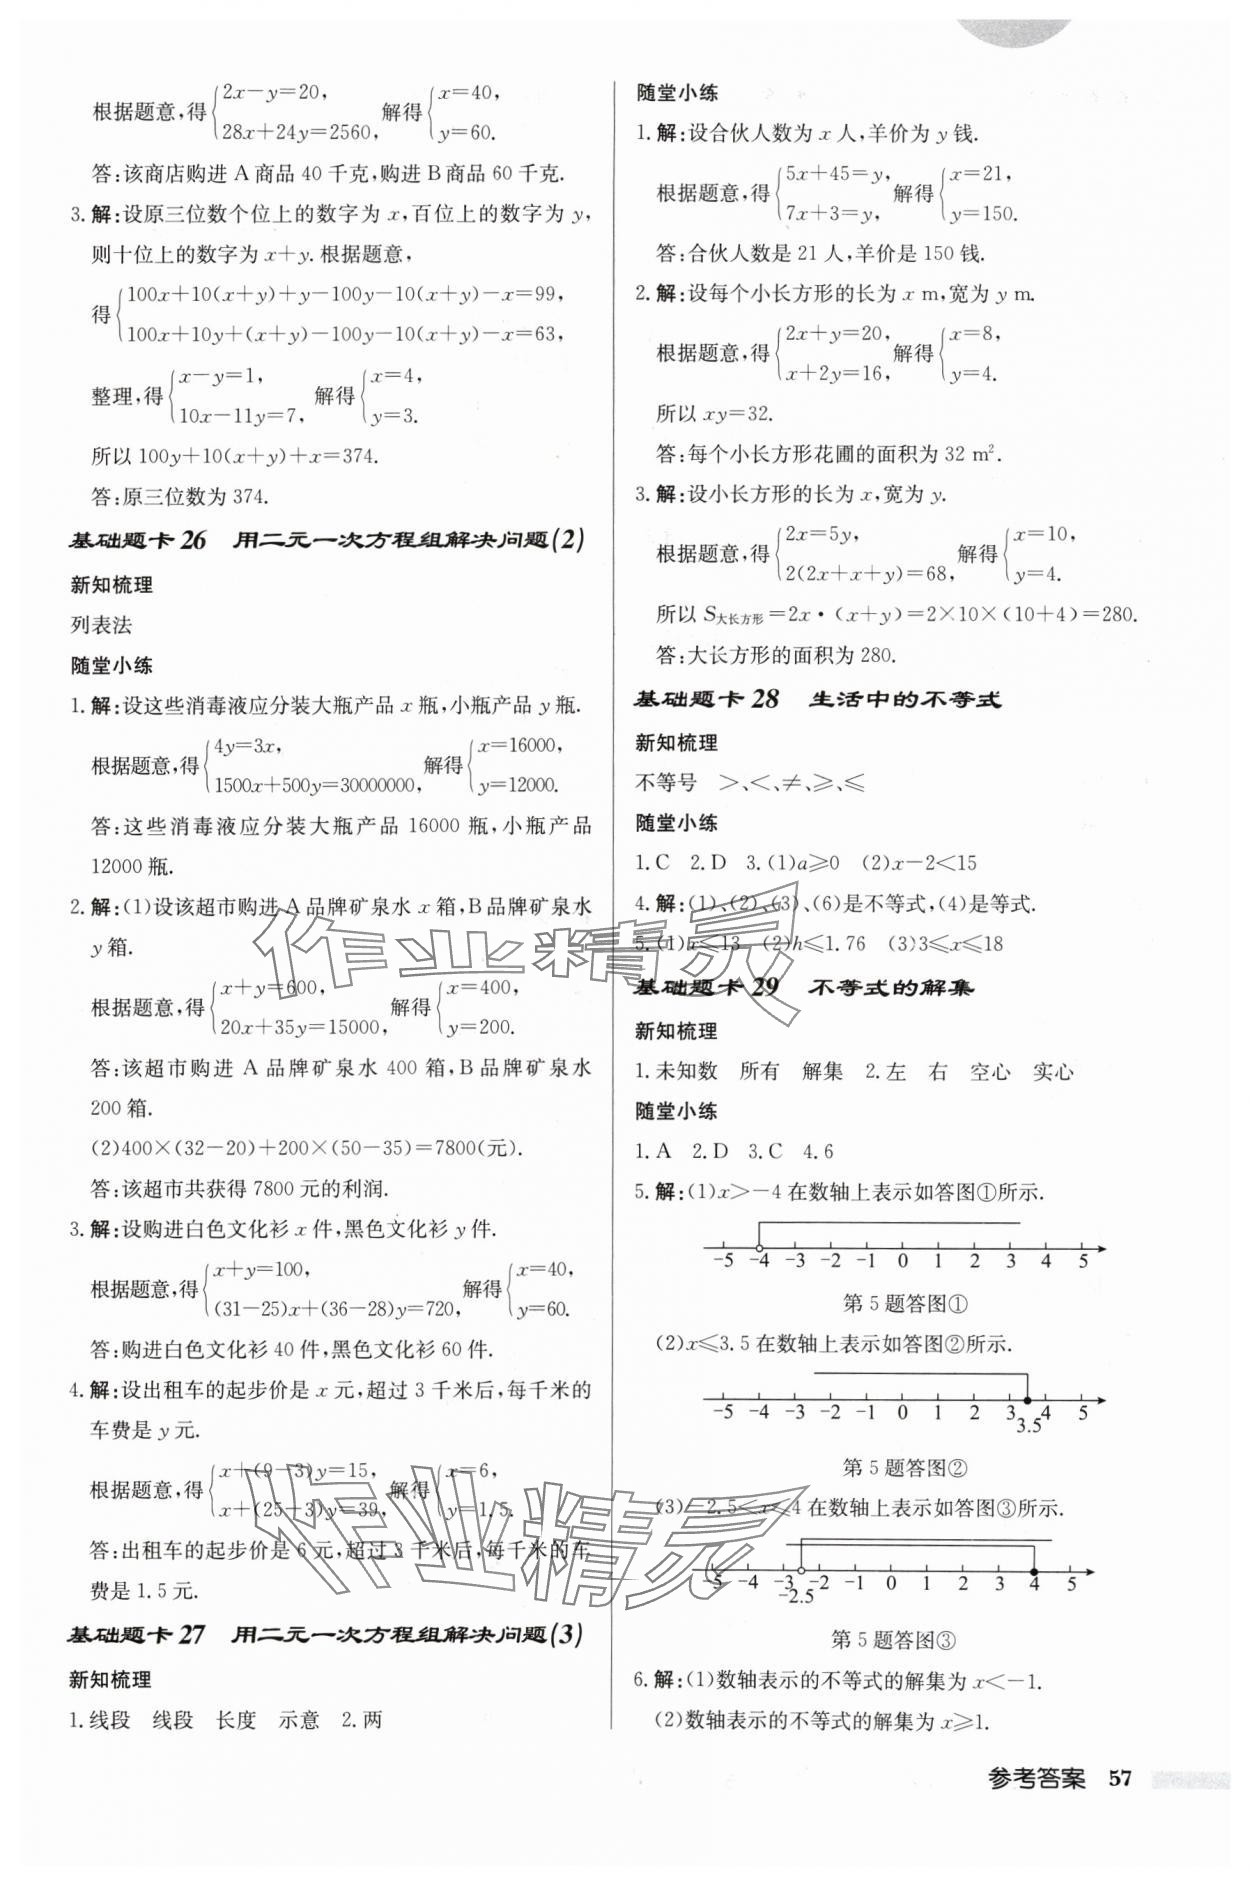 根据题意,得{2x-y=20, 28x+24y=2560, 解得{x=40, y=60.
答:该商店购进 A 商品 40 千克,购进 B 商品 60 千克.
3. 解:设原三位数个位上的数字为 x,百位上的数字为 y,
则十位上的数字为 x+y. 根据题意,
得{100x+10(x+y)+y-100y-10(x+y)-x=99, 100x+10y+(x+y)-100y-10(x+y)-x=63,
整理,得{x-y=1, 10x-11y=7, 解得{x=4, y=3.
所以 100y+10(x+y)+x=374.
答:原三位数为 374.
基础题卡 26 用二元一次方程组解决问题(2)
新知梳理
列表法
随堂小练
1. 解:设这些消毒液应分装大瓶产品 x 瓶,小瓶产品 y 瓶.
根据题意,得{4y=3x, 1500x+500y=30000000, 解得{x=16000, y=12000.
答:这些消毒液应分装大瓶产品 16000 瓶,小瓶产品
12000 瓶.
2. 解:(1)设该超市购进 A 品牌矿泉水 x 箱,B 品牌矿泉水
y 箱.
根据题意,得{x+y=600, 20x+35y=15000, 解得{x=400, y=200.
答:该超市购进 A 品牌矿泉水 400 箱,B 品牌矿泉水
200 箱.
(2)400×(32-20)+200×(50-35)=7800(元).
答:该超市共获得 7800 元的利润.
3. 解:设购进白色文化衫 x 件,黑色文化衫 y 件.
根据题意,得{x+y=100, (31-25)x+(36-28)y=720, 解得{x=40, y=60.
答:购进白色文化衫 40 件,黑色文化衫 60 件.
4. 解:设出租车的起步价是 x 元,超过 3 千米后,每千米的
车费是 y 元.
根据题意,得{x+(9-3)y=15, x+(25-3)y=39, 解得{x=6, y=1.5.
答:出租车的起步价是 6 元,超过 3 千米后,每千米的车
费是 1.5 元.
基础题卡 27 用二元一次方程组解决问题(3)
新知梳理
1. 线段 线段 长度 示意 2. 两
随堂小练
1. 解:设合伙人数为 x 人,羊价为 y 钱.
根据题意,得{5x+45=y, 7x+3=y, 解得{x=21, y=150.
答:合伙人数是 21 人,羊价是 150 钱.
2. 解:设每个小长方形的长为 x m,宽为 y m.
根据题意,得{2x+y=20, x+2y=16, 解得{x=8, y=4.
所以 xy=32.
答:每个小长方形花圃的面积为 32 m².
3. 解:设小长方形的长为 x,宽为 y.
根据题意,得{2x=5y, 2(2x+x+y)=68, 解得{x=10, y=4.
所以 S大长方形=2x·(x+y)=2×10×(10+4)=280.
答:大长方形的面积为 280.
基础题卡 28 生活中的不等式
新知梳理
不等号 >、<、≠、≥、≤
随堂小练
1. C 2. D 3. (1)a≥0 (2)x-2<15
4. 解:(1)、(2)、(3)、(6)是不等式,(4)是等式.
5. (1)x≤13 (2)h≤1.76 (3)3≤x≤18
基础题卡 29 不等式的解集
新知梳理
1. 未知数 所有 解集 2. 左 右 空心 实心
随堂小练
1. A 2. D 3. C 4. 6
5. 解:(1)x>-4 在数轴上表示如答图①所示.
-5 -4 -3 -2 -1 0 1 2 3 4 5
第 5 题答图①
(2)x≤3.5 在数轴上表示如答图②所示.
-5 -4 -3 -2 -1 0 1 2 3 4 5
3.5
第 5 题答图②
(3)-2.5<x≤4 在数轴上表示如答图③所示.
-5 -4 -3 -2 -1 0 1 2 3 4 5
-2.5
第 5 题答图③
6. 解:(1)数轴表示的不等式的解集为 x<-1.
(2)数轴表示的不等式的解集为 x≥1.
参考答案 57
作业精灵
作业精灵